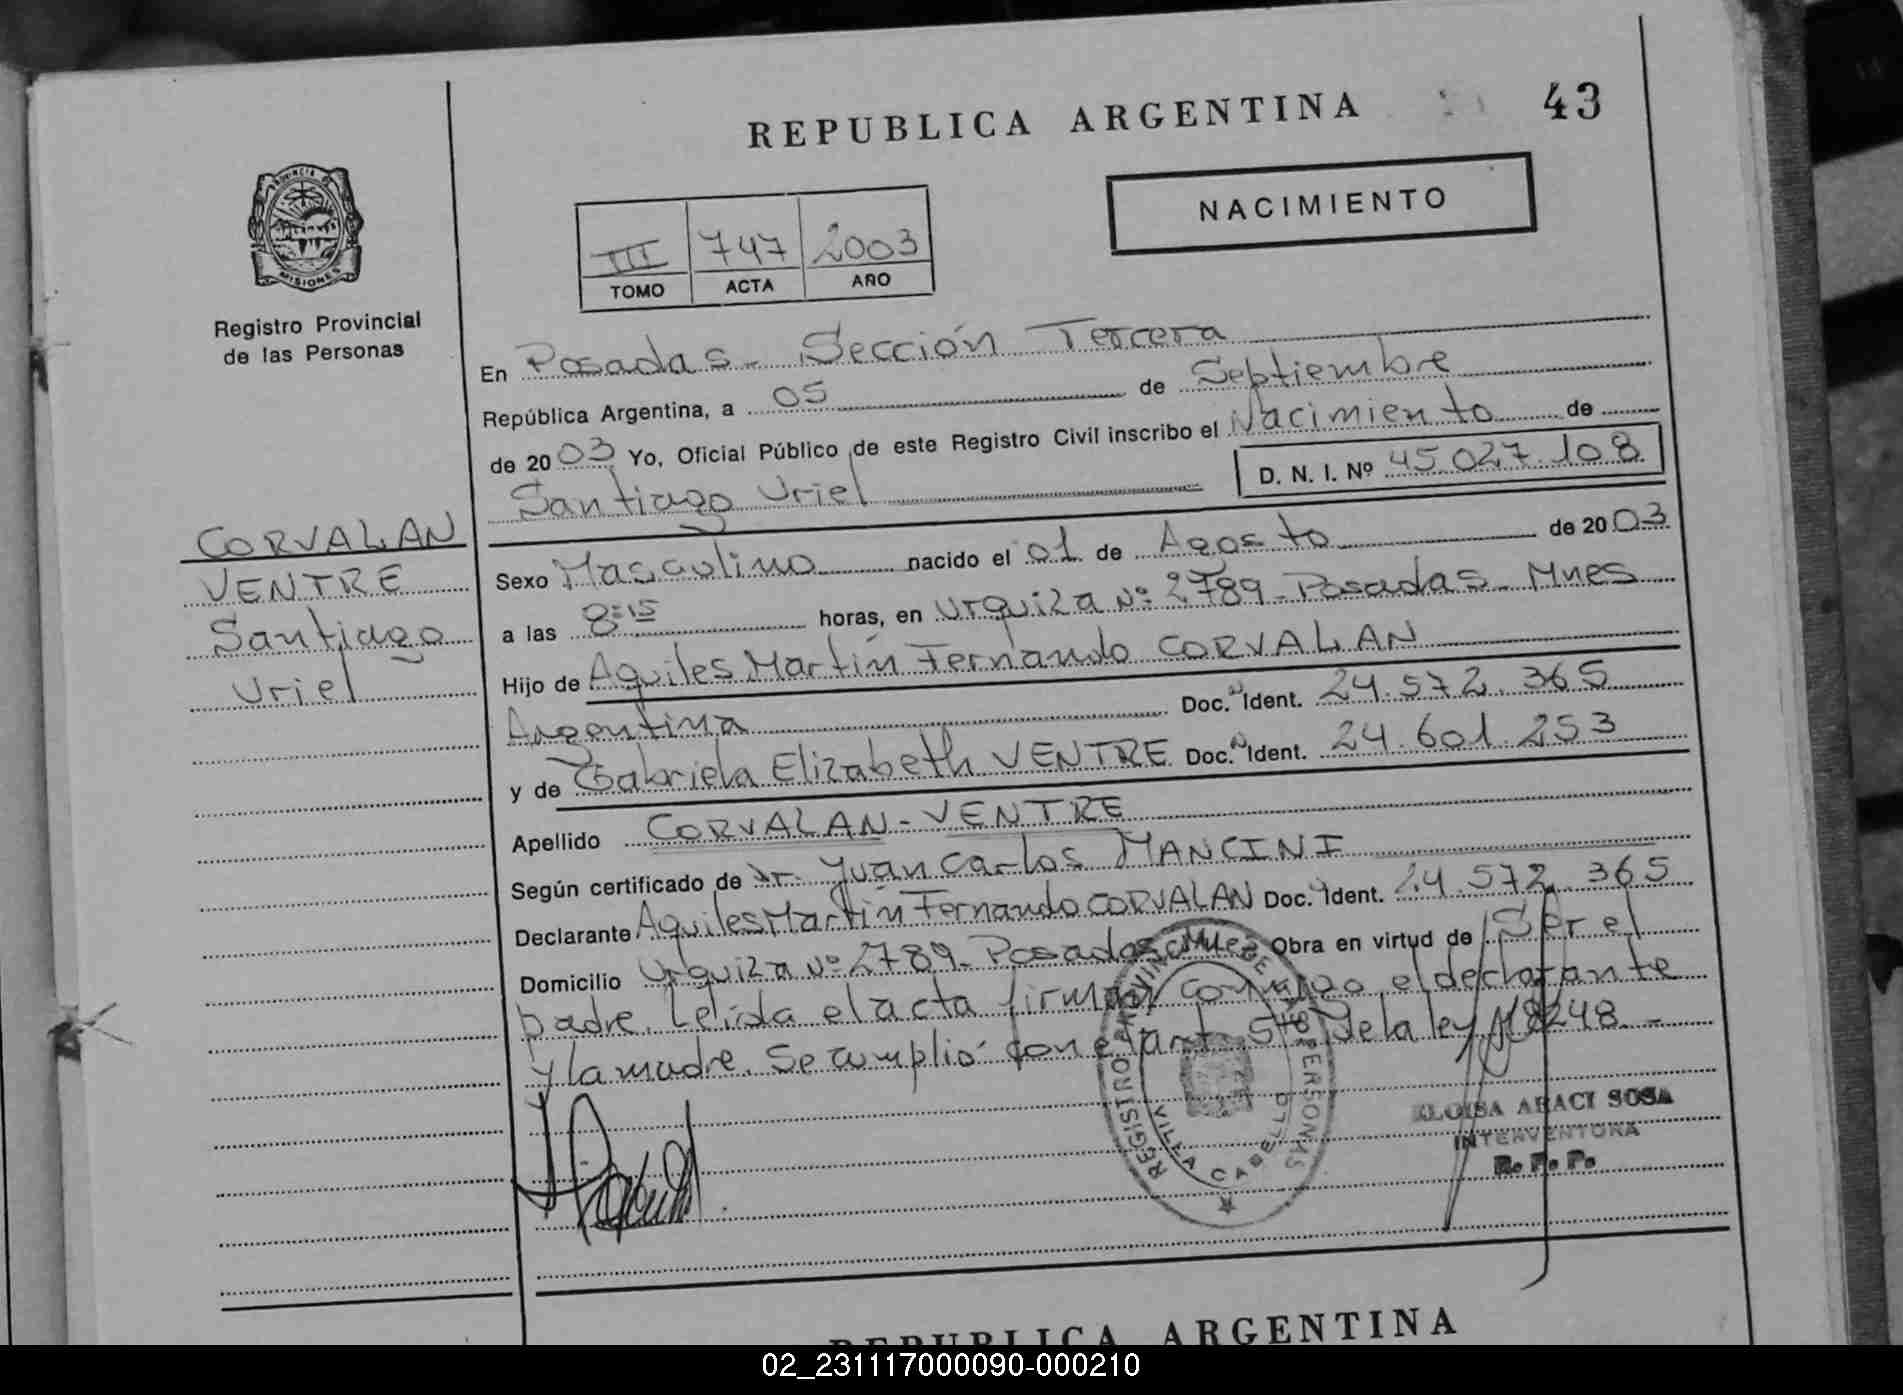 REPUBLICA ARGENTINA
43
PROVINCIA DE
MISIONES
Registro Provincial
de las Personas
NACIMIENTO
III 747 2003
TOMO ACTA AÑO
En Posadas - Sección Tercera
República Argentina, a 05 de Septiembre
de 2003 Yo, Oficial Público de este Registro Civil inscribo el Nacimiento de
Santiago Uriel D. N. I. Nº 45.027.108
CORVALAN
VENTRE
Santiago
Uriel
Sexo Masculino nacido el 01 de Agosto de 2003
a las 8:15 horas, en Urquiza Nº 2789 - Posadas - Mnes
Hijo de Aquiles Martín Fernando CORVALAN
Argentina Doc. Ident. 24.572.365
y de Gabriela Elizabeth VENTRE Doc. Ident. 24.601.253
Apellido CORVALAN - VENTRE
Según certificado de Dr. Juan Carlos MANCINI
Declarante Aquiles Martín Fernando CORVALAN Doc. Ident. 24.572.365
Domicilio Urquiza Nº 2789 - Posadas Mnes Obra en virtud de Ser el
padre. Leída el acta firman conmigo el declarante
y la madre. Se cumplió con el art. 5to de la ley Nº 8248 -
REGISTRO PROVINCIAL DE LAS PERSONAS
VILLA CABELLO
ELOISA ARACI SOSA
INTERVENTORA
R. P. P.
REPUBLICA ARGENTINA
02_231117000090-000210